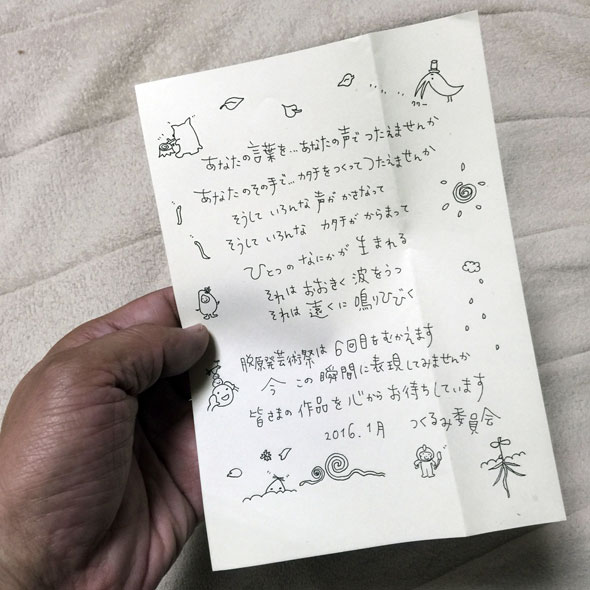 クワー
あなたの言葉を…あなたの声でつたえませんか
あなたのその手で…カタチをつくってつたえませんか
そうして いろんな 声が かさなって
そうして いろんな カタチが からまって
ひとつの なにかが 生まれる
それは おおきく 波をうつ
それは 遠くに 鳴りひびく
脱原発芸術祭は 6回目をむかえます
今 この 瞬間に 表現してみませんか
皆さまの 作品を 心から お待ちしています
2016.1月 つくるみ委員会